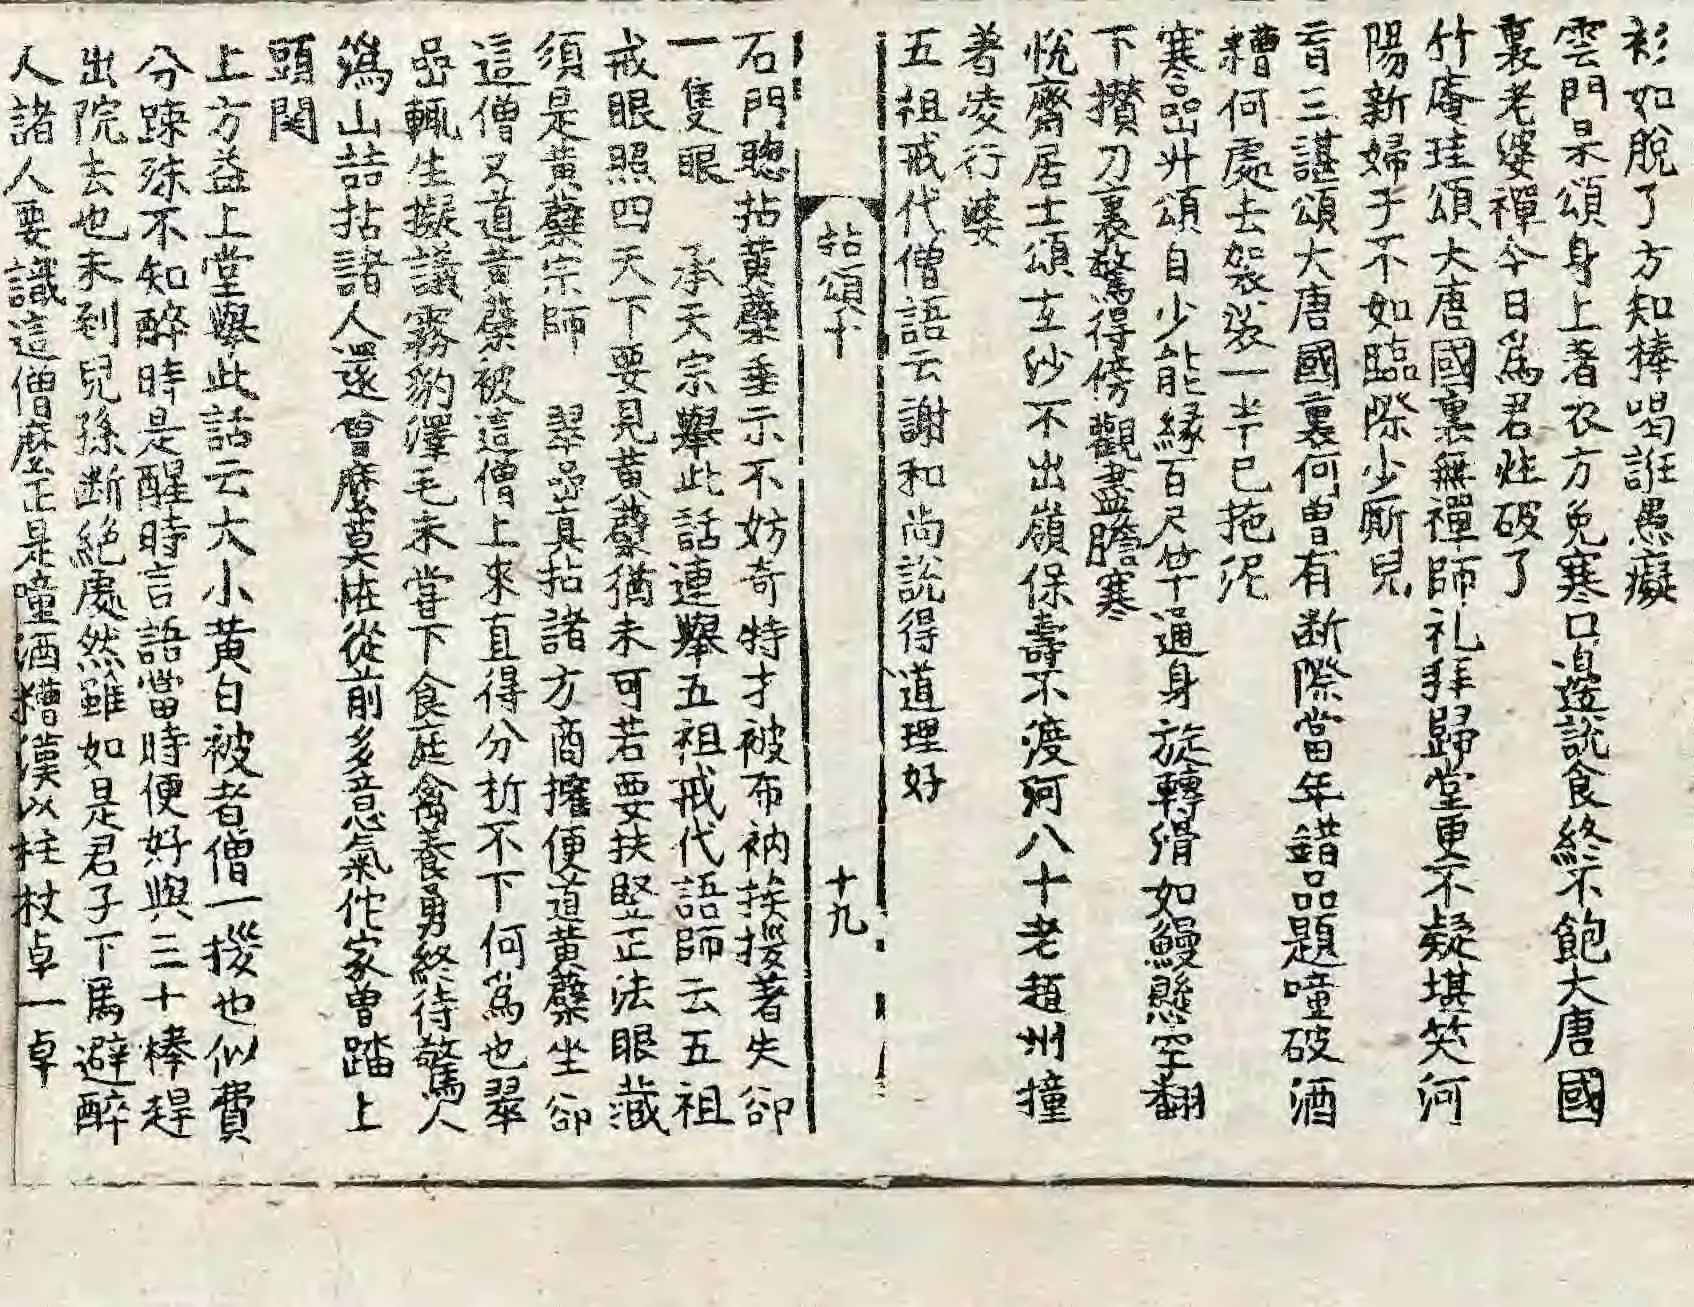 衫如脫了方知棒喝誑愚癡
雲門杲頌身上著衣方免寒口邊說食終不飽大唐國
裏老婆禪今日爲君注破了
竹庵珪頌大唐國裏無禪師礼拜歸堂更不疑堪笑河
陽新婦子不如臨際少厮兒
肓三諶頌大唐國裏何曾有断際當年錯品題噇破酒
糟何處去袈裟一半已拖泥
寒嵒升頌自少能緣百尺竿通身旋轉滑如鰻懸空翻
下攢刀裏驚得傍觀盡膽寒
悅齋居士頌玄沙不出嶺保壽不渡河八十老趙州撞
著凌行婆
五祖戒代僧語云謝和尚說得道理好
拈頌十 十九
石門聰拈黃蘗垂示不妨奇特才被布衲挨拶著失却
一隻眼 承天宗舉此話連舉五祖戒代語師云五祖
戒眼照四天下要見黃蘗猶未可若要扶竪正法眼藏
須是黃蘗宗師 翠嵒真拈諸方商攉便道黃蘗坐却
這僧又道黃蘗被這僧上來直得分折不下何爲也翠
嵒輒生擬議霧豹澤毛未甞下食庭禽養勇終待驚人
潙山喆拈諸人還會麼莫恠從前多意氣佗家曾踏上
頭関
上方益上堂舉此話云大小黃蘗被者僧一拶也似費
分踈殊不知醉時是醒時言語當時便好與三十棒趕
出院去也未到兒孫断絕處然雖如是君子下馬避醉
人諸人要識這僧麽正是噇酒糟漢以柱杖卓一卓